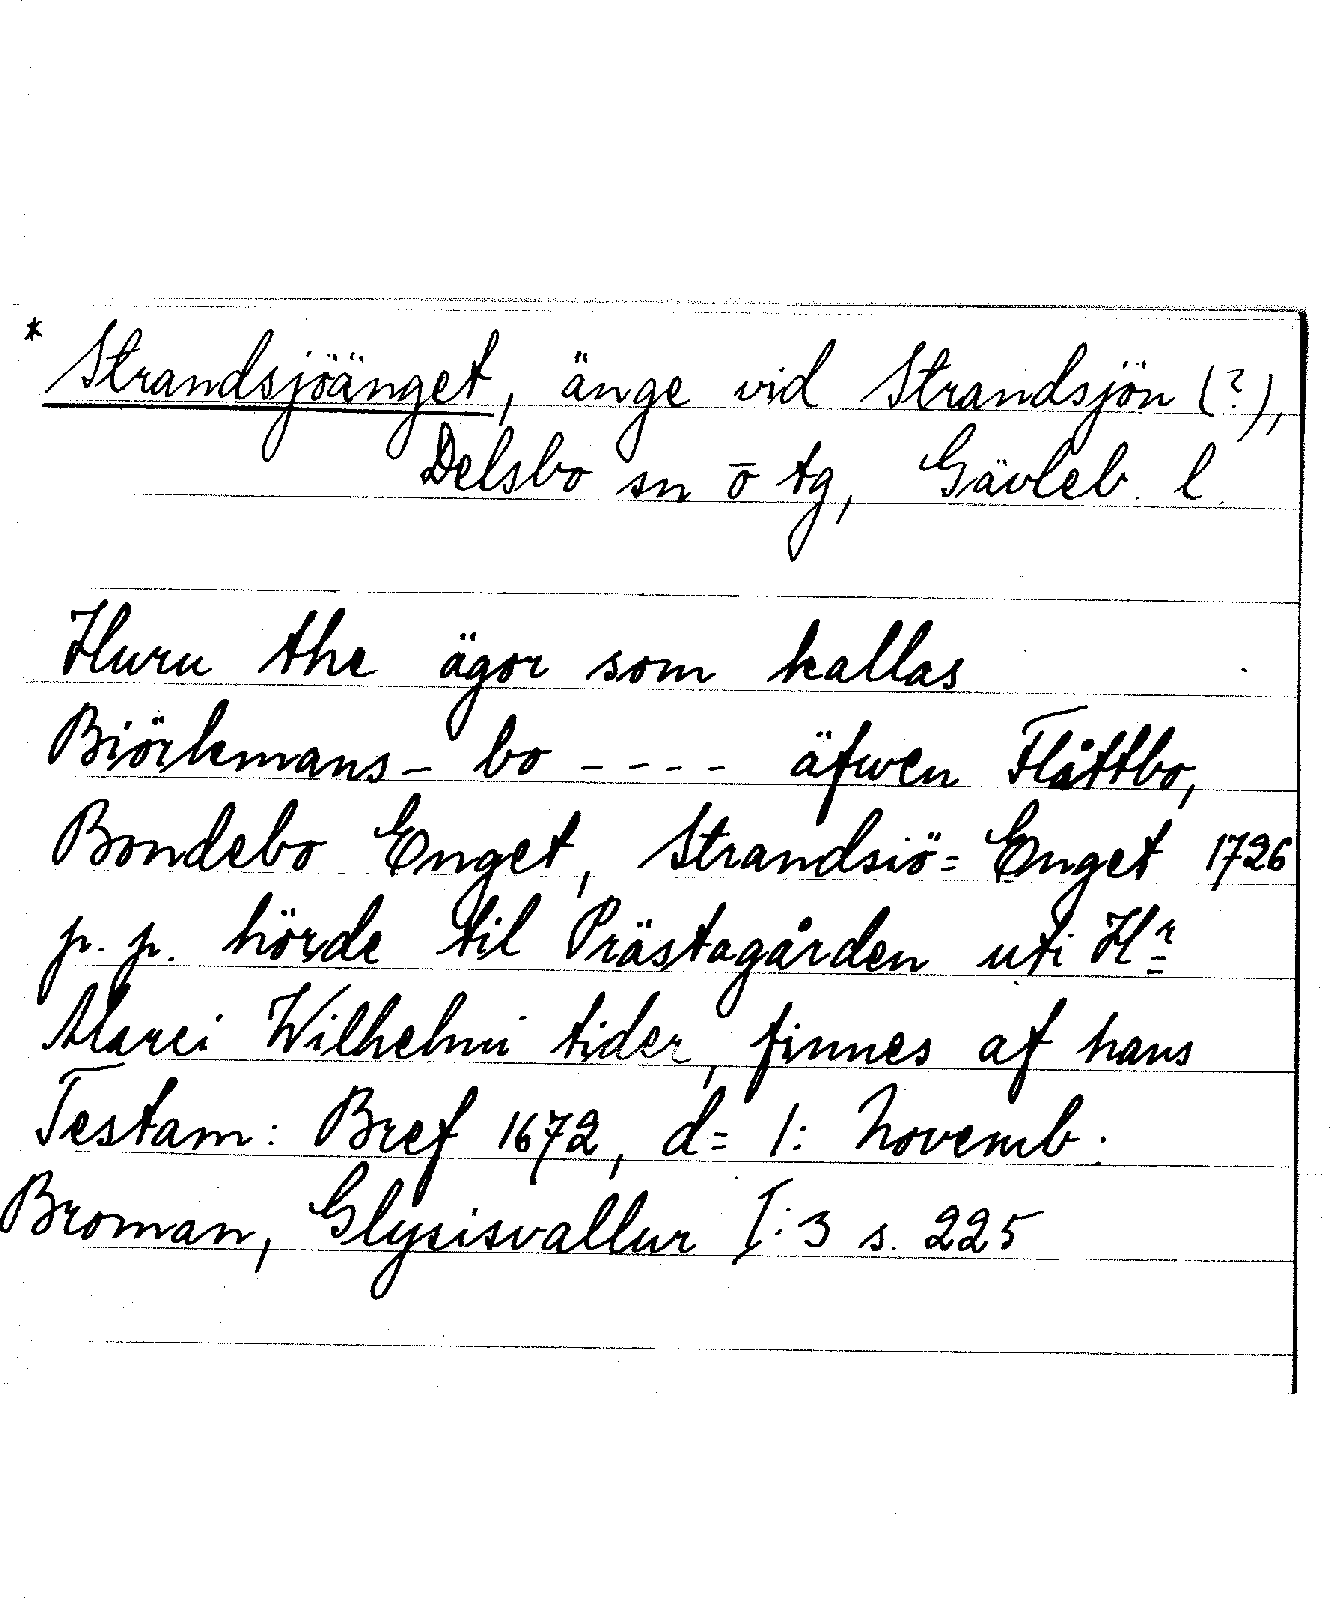 * Strandsjöänget, änge vid Strandsjön (?),
Delsbo sn o tg, Gävleb. l.
Huru the ägor som kallas
Biörkmans- bo ---- äfwen Flåttbo,
Bondebo Enget, Strandsiö= Enget 1726
p. p. hörde til Prästagården uti Hr
Marci Wilhelmi tider, finnes af hans
Testam: Bref 1672, d= 1: Novemb.
Broman, Glysisvallur I:3 s. 225